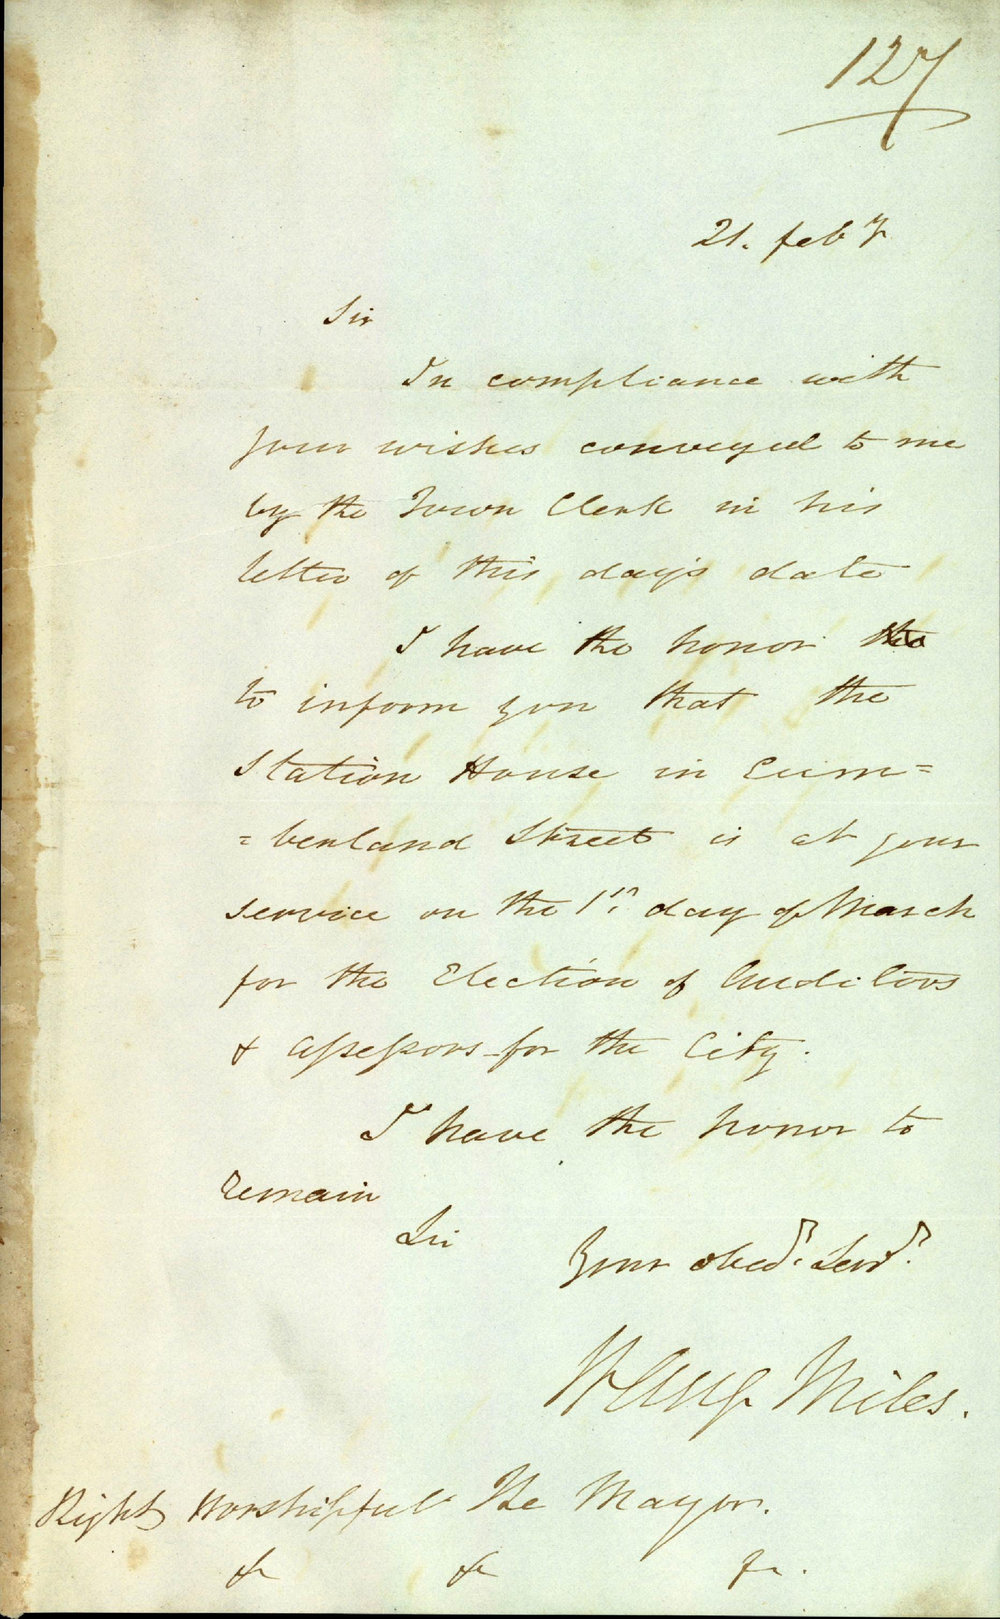 127
21. feby
Sir
In compliance with
your wishes conveyed to me
by the Town Clerk in his
letter of this day's date
I have the honor
to inform you that the
Station House in Cum=
=berland Street is at your
service on the 1st. day of March
for the Election of Auditors
& Assessors for the City.
I have the honor to
remain
Sir
Your obedt. Servt.
Wm Augs Miles.
Right Worshipful The Mayor.
&c &c &c.